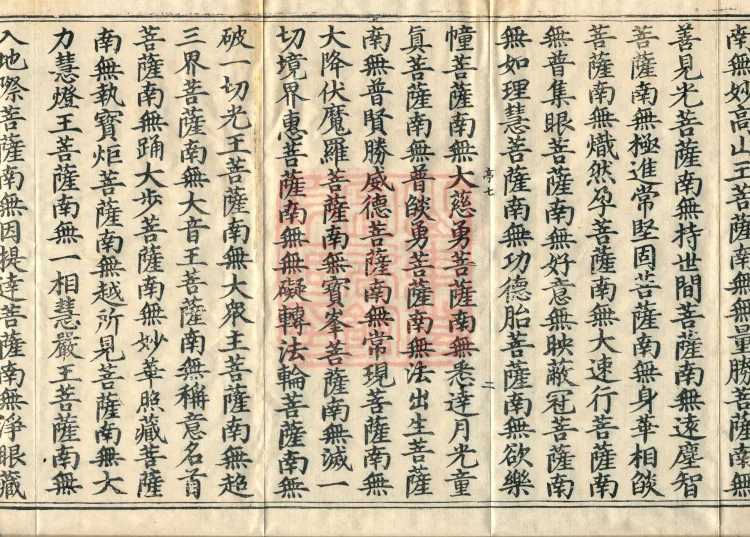 南無妙高山王菩薩南無無量勝
善見光菩薩南無持世間菩薩南無遠塵智
菩薩南無極進常堅固菩薩南無身華相燄
菩薩南無熾然孕菩薩南無大速行菩薩南
無普集眼菩薩南無好意無映蔽冠菩薩南
無如理慧菩薩南無功德胎菩薩南無欲樂
亭七 二
幢菩薩南無大慈勇菩薩南無悉達月光童
真菩薩南無普燄勇菩薩南無法出生菩薩
南無普賢勝威德菩薩南無常現菩薩南無
大降伏魔羅菩薩南無寶峯菩薩南無滅一
切境界惠菩薩南無無礙轉法輪菩薩南無
破一切光王菩薩南無大衆王菩薩南無超
三界菩薩南無大音王菩薩南無稱意名首
菩薩南無踊大步菩薩南無妙華照藏菩薩
南無執寶炬菩薩南無越所見菩薩南無大
力慧燈王菩薩南無一相慧嚴王菩薩南無
入地際菩薩南無因提達菩薩南無淨眼藏